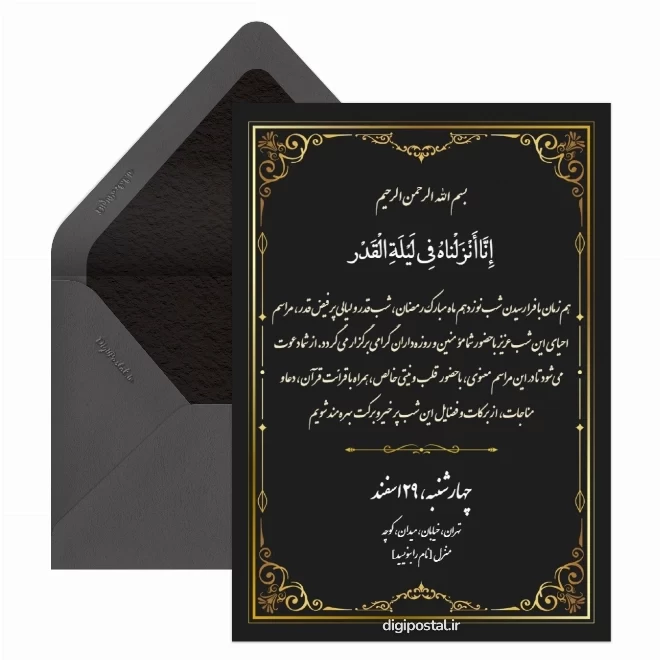 بسم الله الرحمن الرحیم
إِنَّا أَنْزَلْنَاهُ فِی لَیْلَةِ الْقَدْر
هم زمان با فرا رسیدن شب نوزدهم ماه مبارک رمضان، شب قدر و لیالی پر فیض قدر، مراسم
احیای این شب عزیز با حضور شما مؤمنین و روزه داران گرامی برگزار می گردد. از شما دعوت
می شود تا در این مراسم معنوی، با حضور قلب و نیتی خالص، همراه با قرائت قرآن، دعا و
مناجات، از برکات و فضایل این شب پر خیر و برکت بهره مند شویم
چهارشنبه، ۲۹ اسفند
تهران، خیابان، میدان، کوچه
منزل [نام را بنویسید]
digipostal.ir
Digipostal.ir